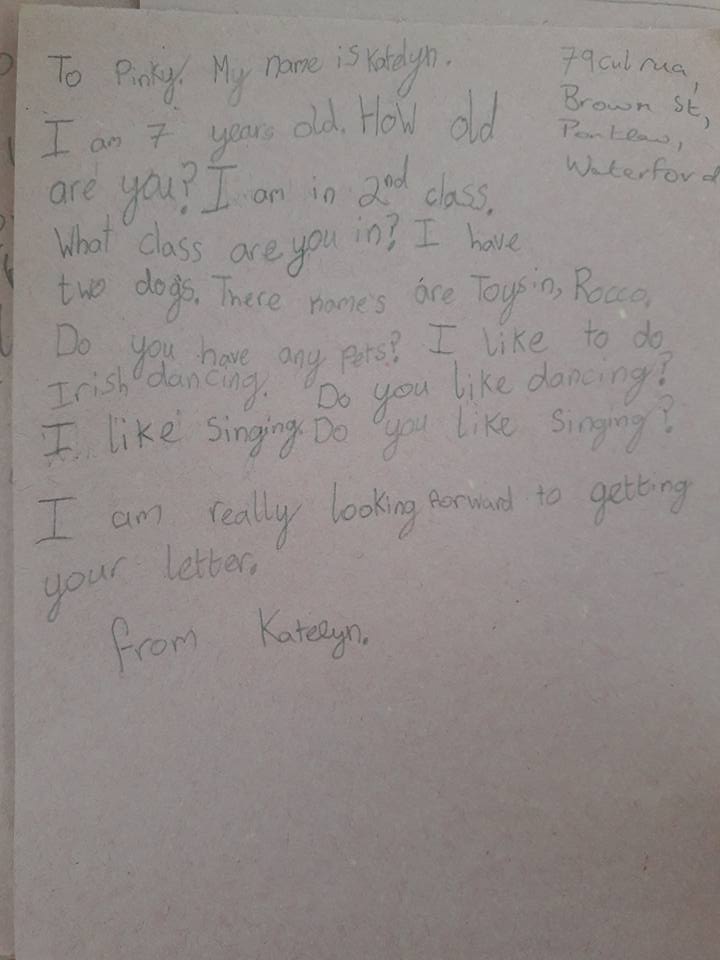 79 Cul rua,
Brown St,
Portlaw,
Waterford
To Pinky. My name is Katelyn.
I am 7 years old. How old
are you? I am in 2nd class.
What class are you in? I have
two dogs. There name's are Toysin, Rocco.
Do you have any pets? I like to do
Irish dancing. Do you like dancing?
I like singing. Do you like singing?
I am really looking forward to getting
your letter.
from Katelyn.